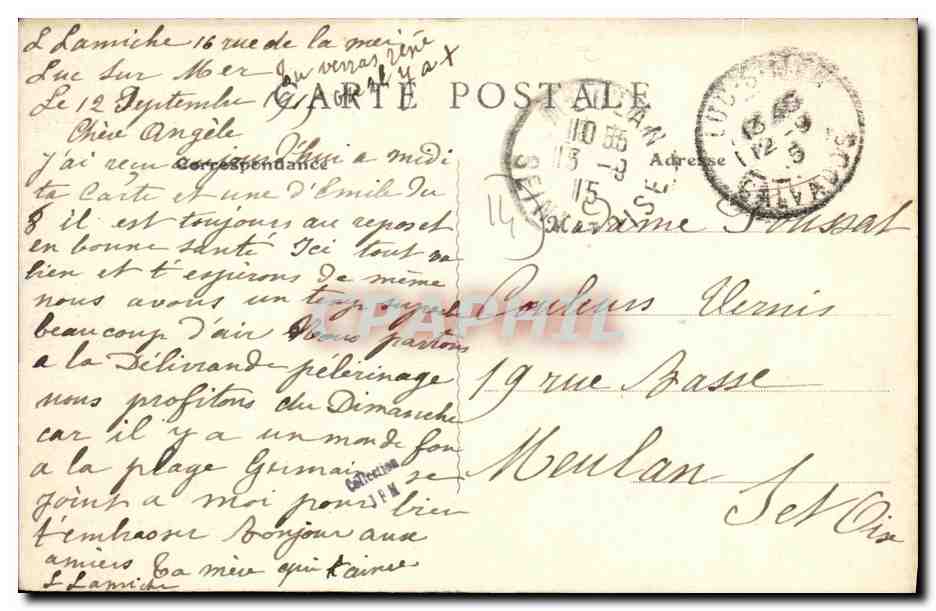 L Lamiche 16 rue de la mer
Luc sur Mer tu verras réné
Le 12 Septembre 1915 il y a +
CARTE POSTALE
Chère Angèle
Correspondance
Adresse
J'ai reçu aujourd'hui a midi
ta Carte et une d'Emile du
8 il est toujours au repos et
en bonne santé Ici tout va
bien et t'espérons de même
nous avons un temp superbe
beaucoup d'air Nous partons
a la Délivrande pélérinage
nous profitons du Dimanche
car il y a un monde fou
a la plage Germaine se
joint a moi pour bien
t'embrasser Bonjour aux
amiers Ta mère qui t'aime
L Lamiche
MEULAN
10 35
13 -9
15
SEINE
LUC-S-MER
12 -9
15
CALVADOS
14
Madame Poussat
Couleurs Vernis
19 rue Basse
Meulan
S et Oise
CPAPHIL
Collection
JPM